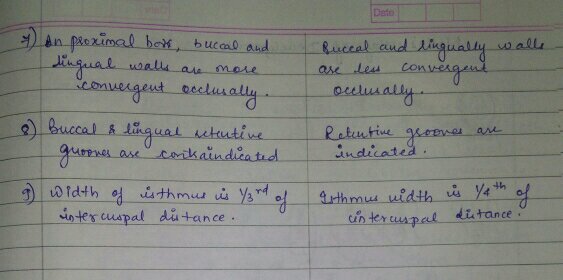 Date
7) In proximal box, buccal and
lingual walls are more
convergent occlusally.
Buccal and lingually walls
are less convergent
occlusally.
8) Buccal & lingual retentive
grooves are contraindicated
Retentive grooves are
indicated.
9) Width of isthmus is 1/3rd of
intercuspal distance.
Isthmus width is 1/4th of
intercuspal distance.